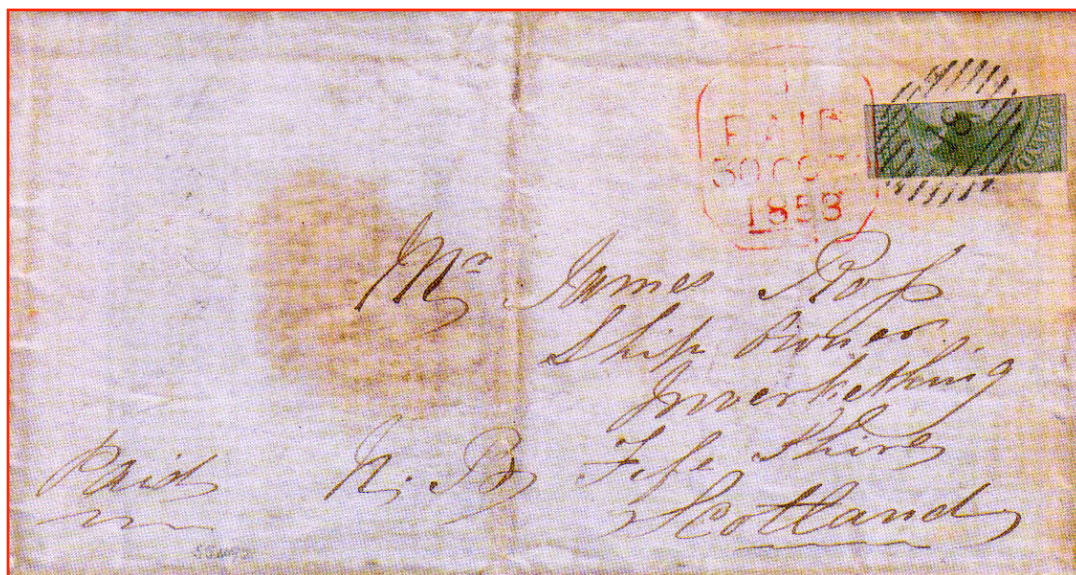 PAID
30 OCT
1853
Mr James Ross
Ship Owner
Inverkething
Paid N. B. Fife Shire
Scotland